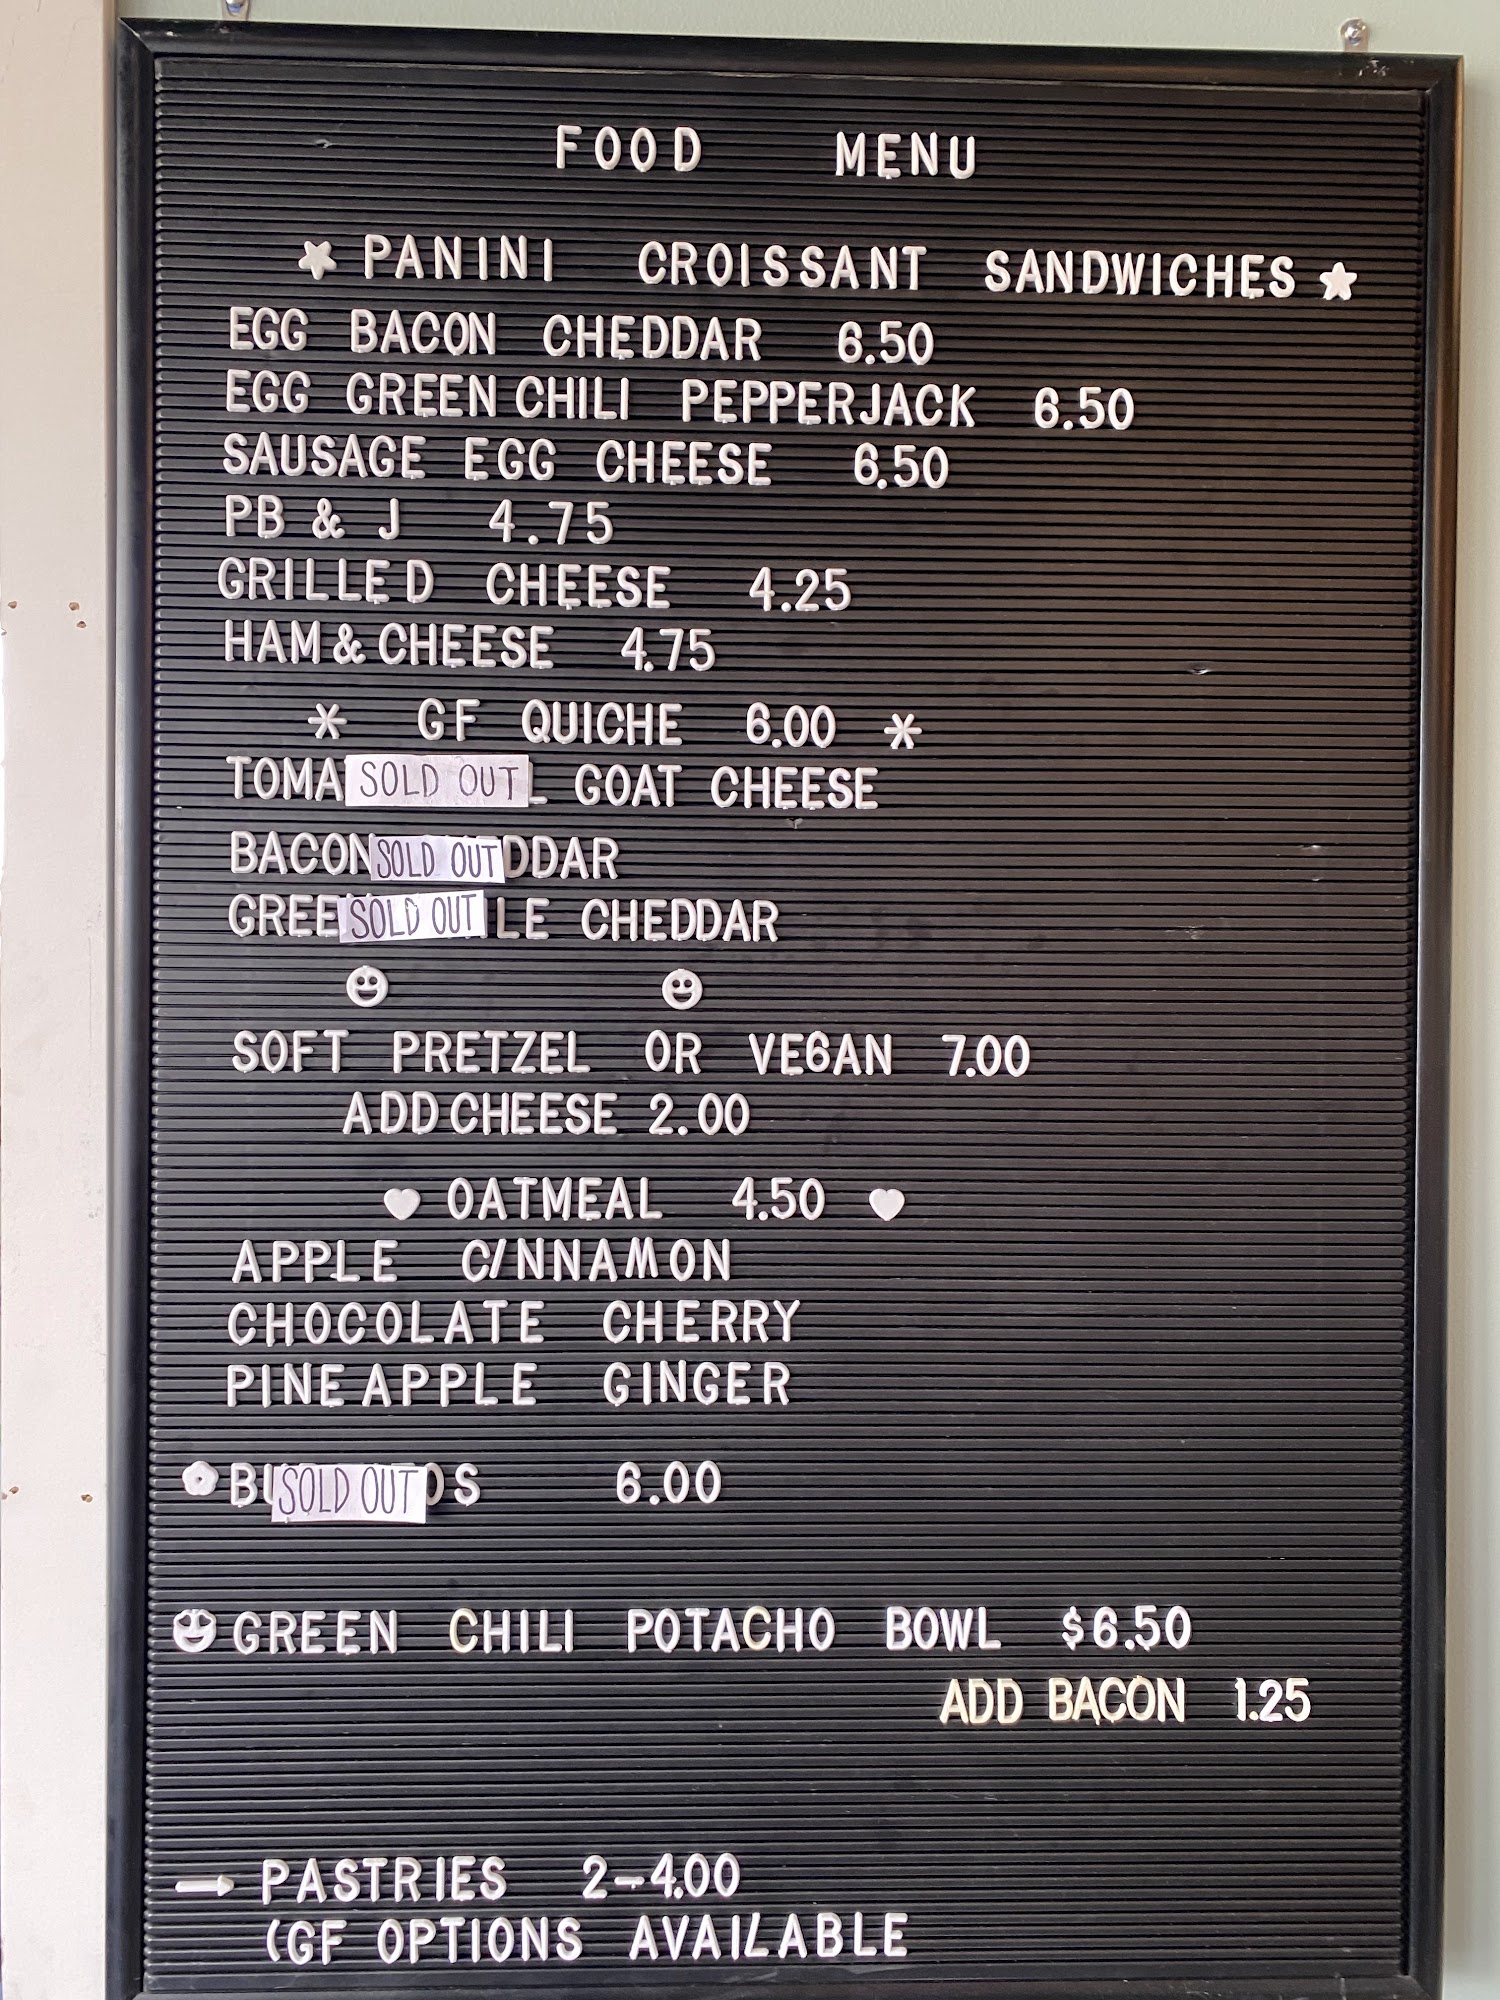 FOOD MENU
PANINI CROISSANT SANDWICHES
EGG BACON CHEDDAR 6.50
EGG GREEN CHILI PEPPERJACK 6.50
SAUSAGE EGG CHEESE 6.50
PB & J 4.75
GRILLED CHEESE 4.25
HAM & CHEESE 4.75
* GF QUICHE 6.00 *
TOMA SOLD OUT L GOAT CHEESE
BACON SOLD OUT DDAR
GREE SOLD OUT LE CHEDDAR
SOFT PRETZEL OR VE6AN 7.00
ADD CHEESE 2.00
OATMEAL 4.50
APPLE C/NNAMON
CHOCOLATE CHERRY
PINEAPPLE GINGER
BU SOLD OUT OS 6.00
GREEN CHILI POTACHO BOWL $6.50
ADD BACON 1.25
→ PASTRIES 2-4.00
(GF OPTIONS AVAILABLE